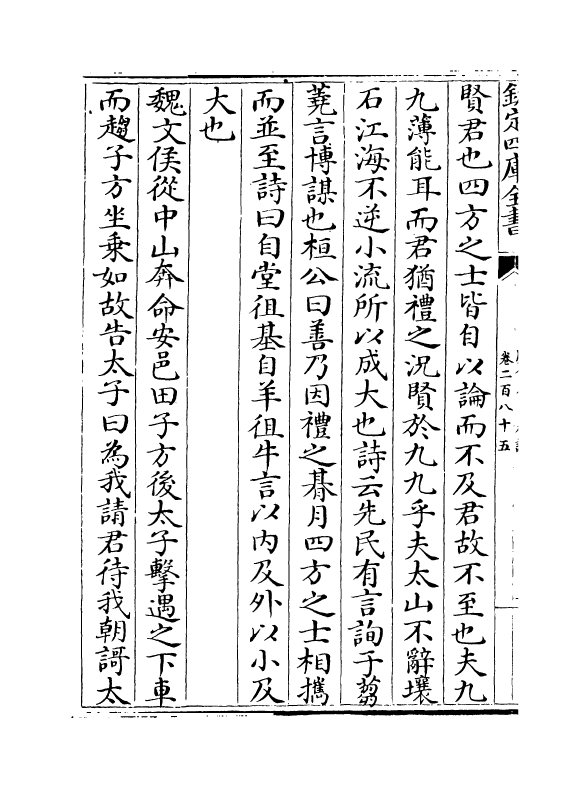 欽定四庫全書
卷二百八十五
賢君也四方之士皆自以論而不及君故不至也夫九
九薄能耳而君猶禮之況賢於九九乎夫太山不辭壤
石江海不逆小流所以成大也詩云先民有言詢于芻
蕘言博謀也桓公曰善乃因禮之朞月四方之士相攜
而並至詩曰自堂徂基自羊徂牛言以内及外以小及
大也
魏文侯從中山奔命安邑田子方後太子擊遇之下車
而趨子方坐乗如故告太子曰為我請君待我朝謌太